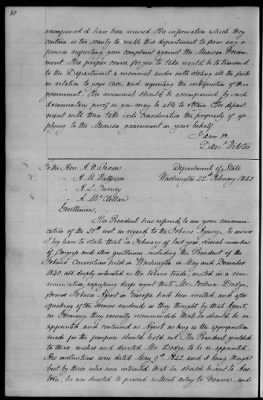 80
accompanied it have been received. The information which they
contain is too scanty to enable this department to form any o-
pinion respecting your complaint against the Mexican Govern-
ment. The proper course for you to take would be to transmit
to the Department a memorial under oath stating all the facts
in relation to your case and requesting the interposition of this
government. The memorial should be accompanied by such
documentary proof as you may be able to obtain. The depart-
ment will then take into consideration the propriety of ap-
plying to the Mexican government in your behalf.
I am &c.
Danl. Webster.
To the Hon. A. W.
Department of State
" A. H.
Washington 22d February 1843.
" A. L.
" A. McClellan
Gentlemen,
The President has referred to me your commun-
ication of the 20th inst. in regard to the Tobacco Agency. In answer
I beg leave to state that in February of last year several members
of Congress and other gentlemen including the President of the
Tobacco Convention held in Washington in May and December
1840, all deeply interested in the tobacco trade, united in a com-
munication, expressing deep regret that Mr. Joshua Dodge,
former Tobacco Agent in Europe had been recalled, and after
speaking of the services rendered as they thought by that Agent
in Germany, they earnestly recommended that he should be re-
appointed and continued as Agent as long as the appropriation
made for the purpose should hold out. The President yielded
to their wishes and directed Mr. Dodge to be re appointed.
His instructions were dated May 9th. 1842, and it being thought
best by those who are interested that he should be sent to Aus-
tria, he was directed to proceed without delay to Vienna, and